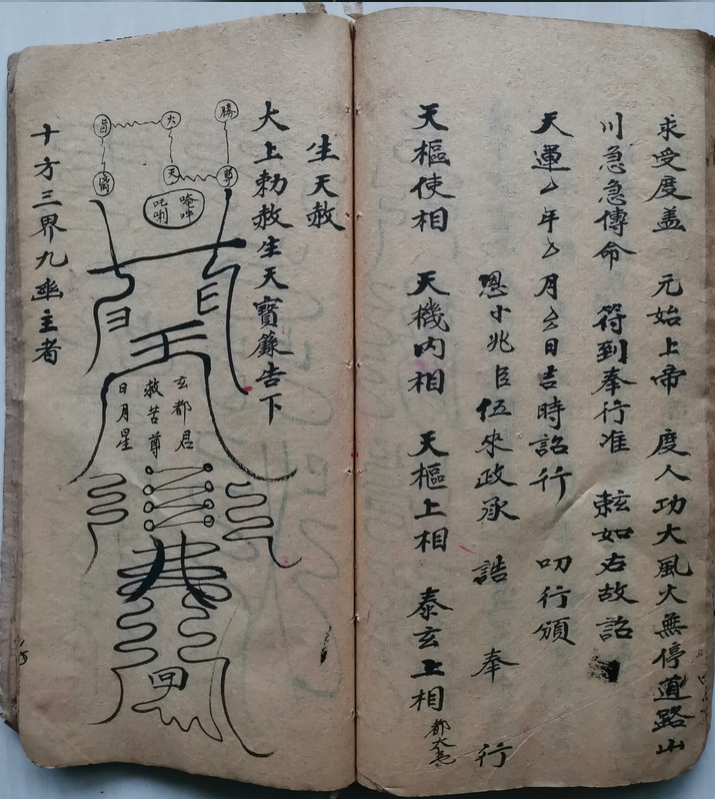 求受度盖　元始上帝　度人功大風火無停道路山
川急急傳命　符到奉行准　赦如右故詔
天運厶年厶月厶日吉時詔行　叨行頒
恩小兆臣伍來政承　誥　奉　行
天樞使相　天機內相　天樞上相　泰玄上相
生天赦
太上勅赦生天寶籙告下
玄都君
救苦尊
日月星
十方三界九幽主者